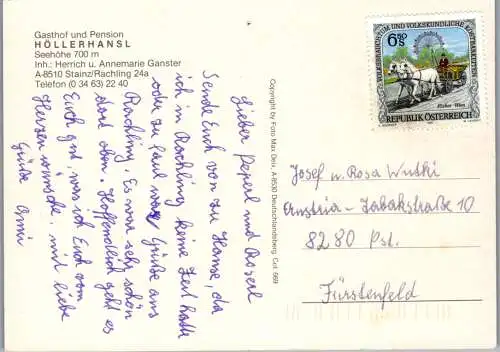 Gasthof und Pension
HÖLLERHANSL
Seehöhe 700 m
Inh.: Herrich u. Annemarie Ganster
A-8510 Stainz/Rachling 24a
Telefon (0 34 63) 22 40
Lieber Peperl und Roserl
Sende Euch von zu Hause, da
ich in Rachling keine Zeit hatte
oder zu faul war Grüße aus
Rachling. Es war sehr schön
dort oben. Hoffendlich geht es
Euch gut, was ich Euch vom
Herzen wünsche, mit liebe
Grüße Anni
Copyright by Foto Max Deix, A-8530 Deutschlandsberg. Col. 669
VOLKSBRAUCHTUM UND VOLKSKUNDLICHE KOSTBARKEITEN
6.50 S
Fiaker Wien
REPUBLIK ÖSTERREICH
Josef u. Rosa Wutki
Ernstria-Tabakstraße 10
8280 Pst.
Fürstenfeld